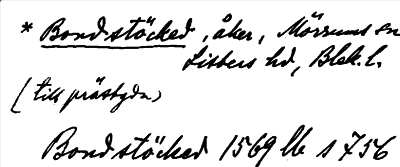 * Bondstöcked, åker, Mörrums sn
Listers hd, Blek. l.
(till prästgdn)
Bondstöcked 1569 lb s 756